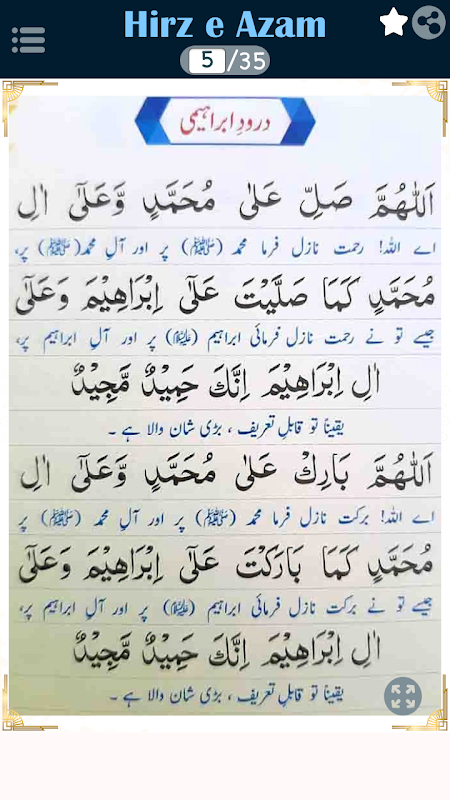 Hirz e Azam
5/35
درودِ ابراہیمی
اَللّٰهُمَّ صَلِّ عَلٰى مُحَمَّدٍ وَّعَلٰٓى اٰلِ
اے اللہ! رحمت نازل فرما محمد (ﷺ) پر اور آلِ محمد (ﷺ) پر،
مُحَمَّدٍ كَمَا صَلَّيْتَ عَلٰٓى اِبْرَاهِيْمَ وَعَلٰٓى
جیسے تو نے رحمت نازل فرمائی ابراہیم (علیہ السلام) پر اور آلِ ابراہیم پر،
اٰلِ اِبْرَاهِيْمَ اِنَّكَ حَمِيْدٌ مَّجِيْدٌ
یقیناً تو قابلِ تعریف ، بڑی شان والا ہے ۔
اَللّٰهُمَّ بَارِكْ عَلٰى مُحَمَّدٍ وَّعَلٰٓى اٰلِ
اے اللہ! برکت نازل فرما محمد (ﷺ) پر اور آلِ محمد (ﷺ) پر
مُحَمَّدٍ كَمَا بَارَكْتَ عَلٰٓى اِبْرَاهِيْمَ وَعَلٰٓى
جیسے تو نے برکت نازل فرمائی ابراہیم (علیہ السلام) پر اور آلِ ابراہیم پر،
اٰلِ اِبْرَاهِيْمَ اِنَّكَ حَمِيْدٌ مَّجِيْدٌ
یقیناً تو قابلِ تعریف ، بڑی شان والا ہے ۔